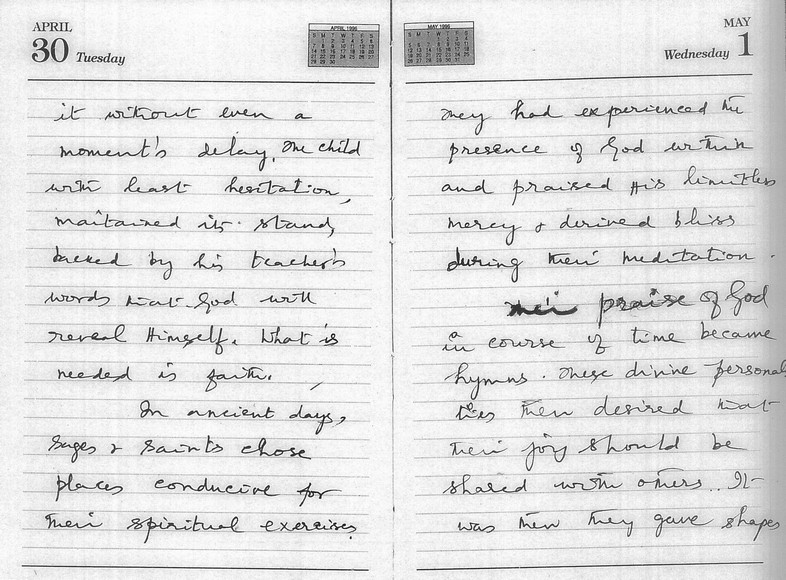 APRIL
30 Tuesday
APRIL 1996
it without even a
moment's delay. The child
with least hesitation,
maitained its stand,
backed by his teacher's
words that God will
reveal Himself. What is
needed is faith.
In ancient days,
sages & saints chose
places conducive for
their spiritual exercises.
MAY
Wednesday 1
MAY 1996
They had experienced the
presence of God within
and praised His limitless
mercy & derived bliss
during their meditation.
Their praise of God
in course of time became
hymns. These divine personal
ties then desired that
their joy should be
shared with others. It
was then they gave shapes